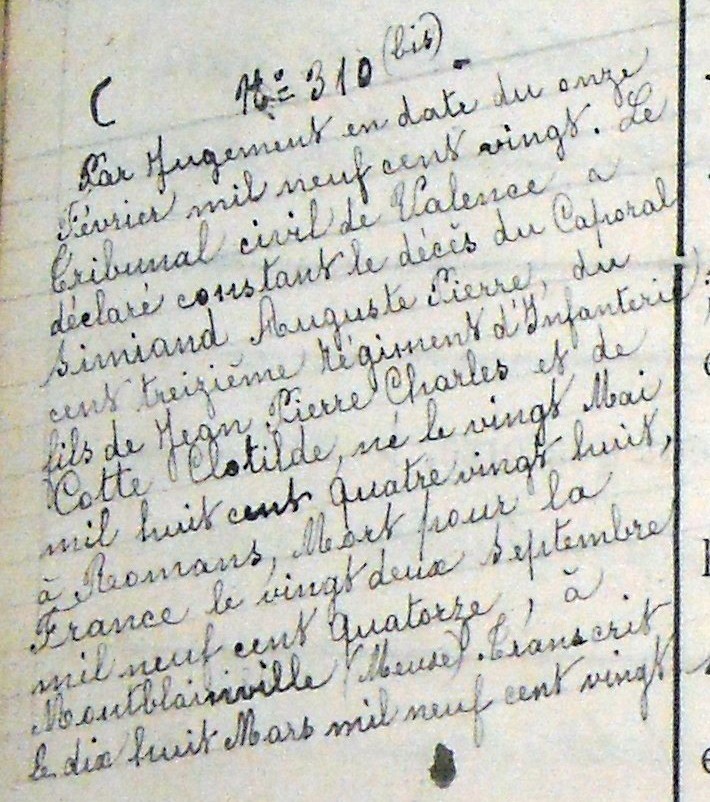 C N° = 310 (bis) -
Par Jugement en date du onze
Février mil neuf cent vingt. Le
Tribunal civil de Valence a
déclaré constant le décès du Caporal
Simiand Auguste Pierre, du
cent treizième régiment d'Infanterie,
fils de Jean Pierre Charles et de
Cotte Clotilde, né le vingt Mai
mil huit cent quatre vingt huit,
à Romans, Mort pour la
France le vingt deux septembre
mil neuf cent quatorze, à
Montblainville (Meuse). Transcrit
le dix huit Mars mil neuf cent vingt